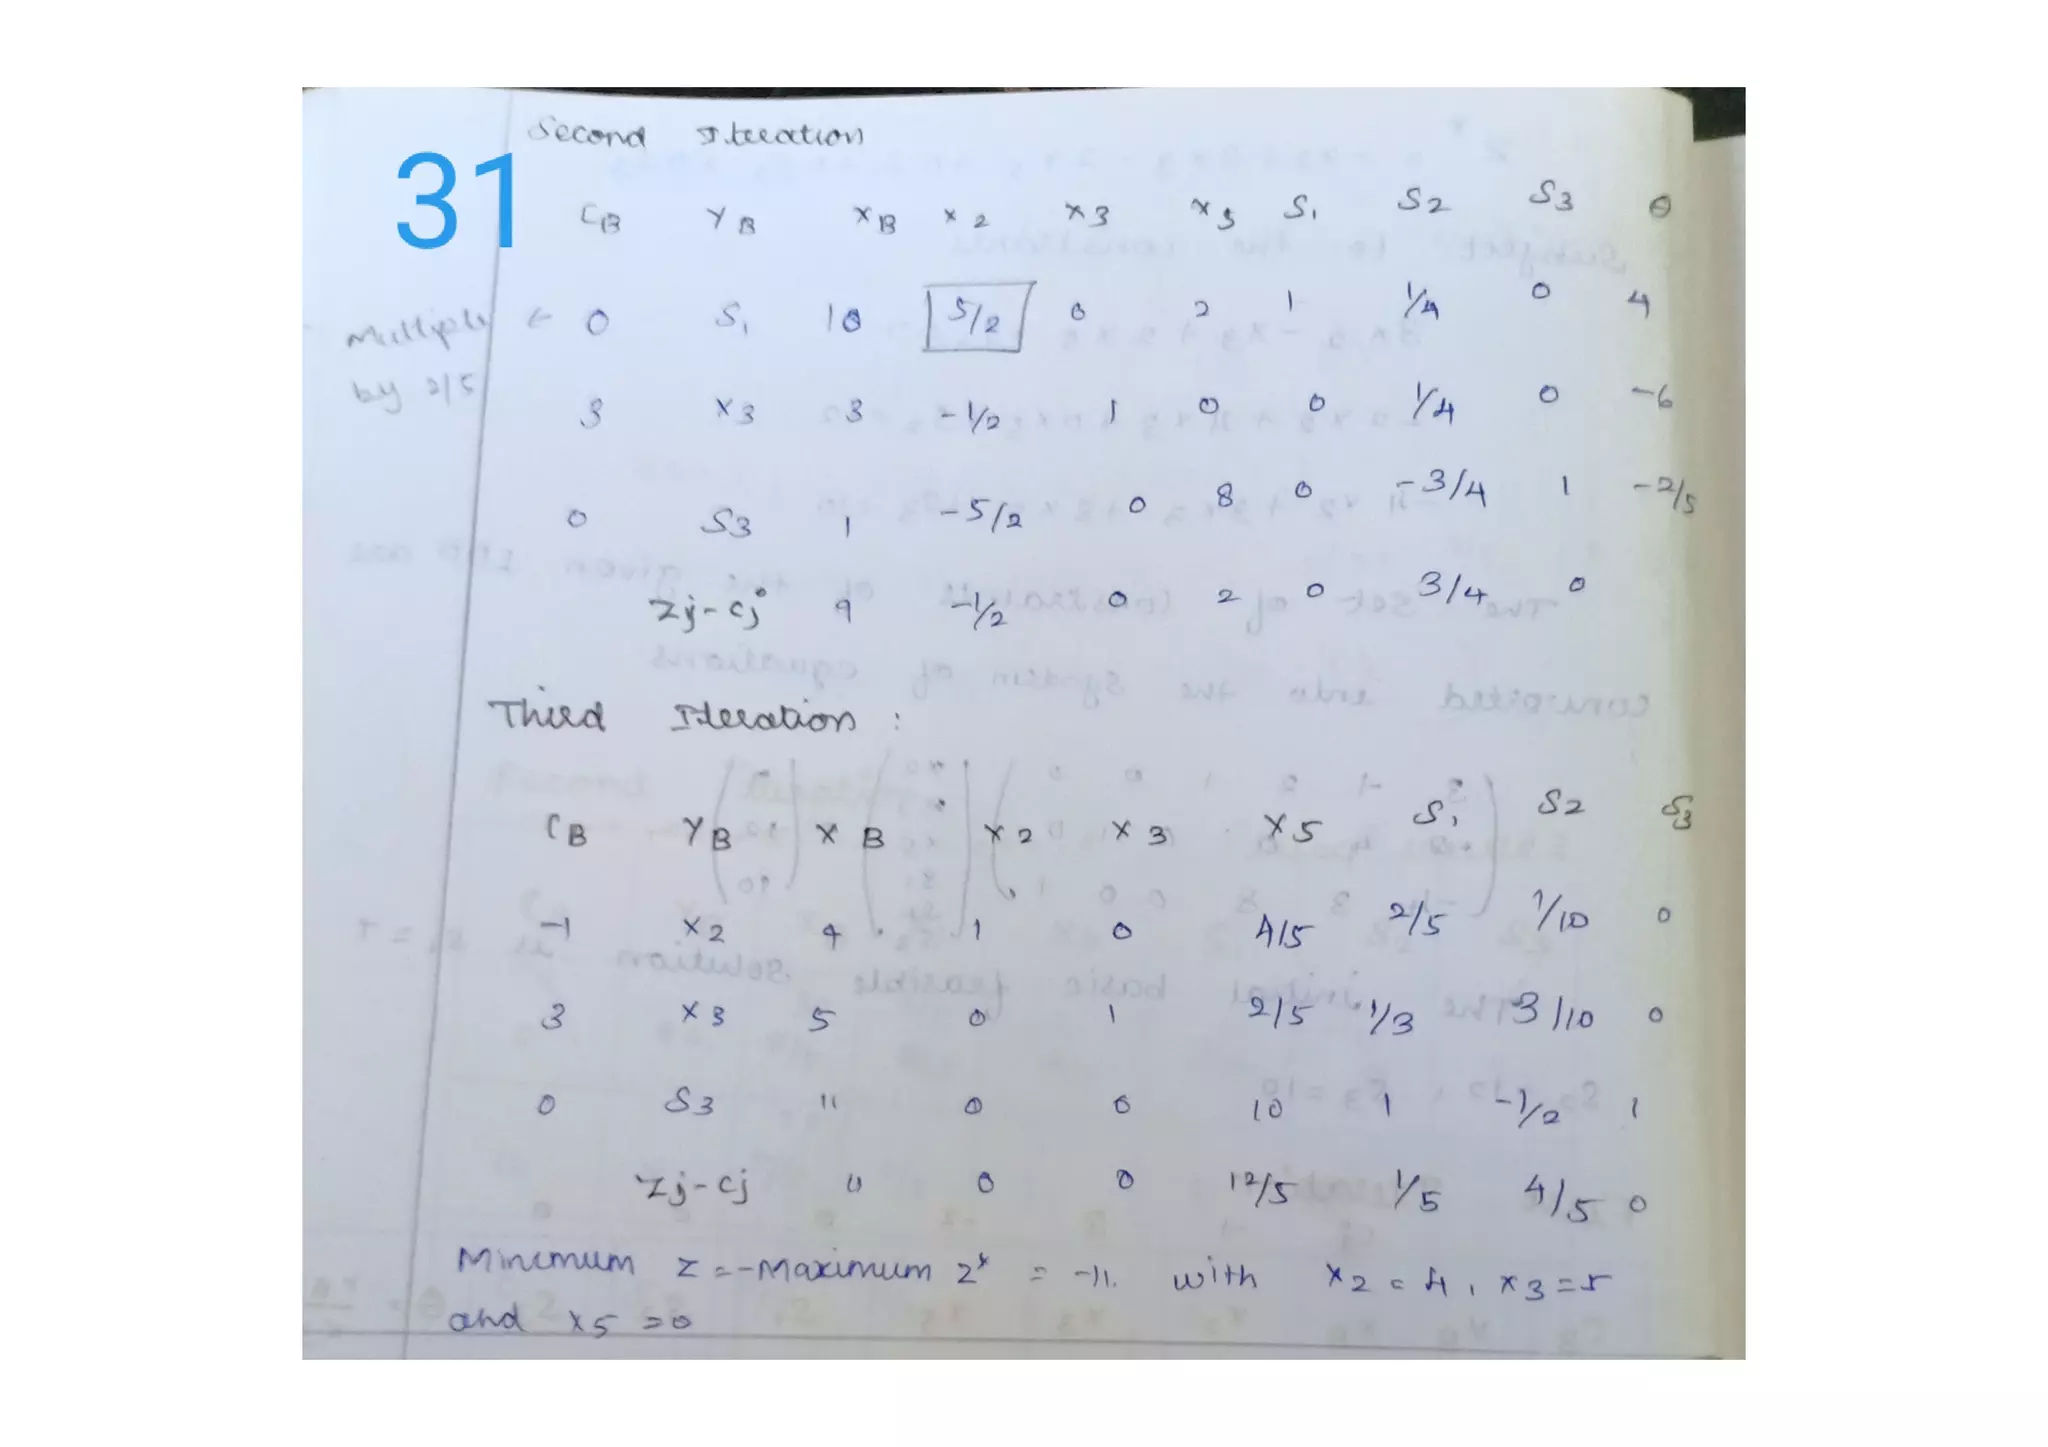 31
Second Iteration
CB YB XB x2 x3 x5 S1 S2 S3 θ
Multiple by 2/5 ← 0 S1 10 5/2 0 2 1 1/4 0 4
3 x3 3 -1/2 1 0 0 1/4 0 -6
0 S3 1 -5/2 0 8 0 -3/4 1 -2/5
Zj-Cj 9 -1/2 0 2 0 3/4 0
Third Iteration :
CB YB XB x2 x3 x5 S1 S2 S3
-1 x2 4 1 0 4/5 2/5 1/10 0
3 x3 5 0 1 2/5 1/3 3/10 0
0 S3 11 0 0 10 1 -1/2 1
Zj-Cj 11 0 0 12/5 1/5 4/5 0
Minimum Z = -Maximum Z* = -11. with x2 = 4, x3 = 5
and x5 = 0